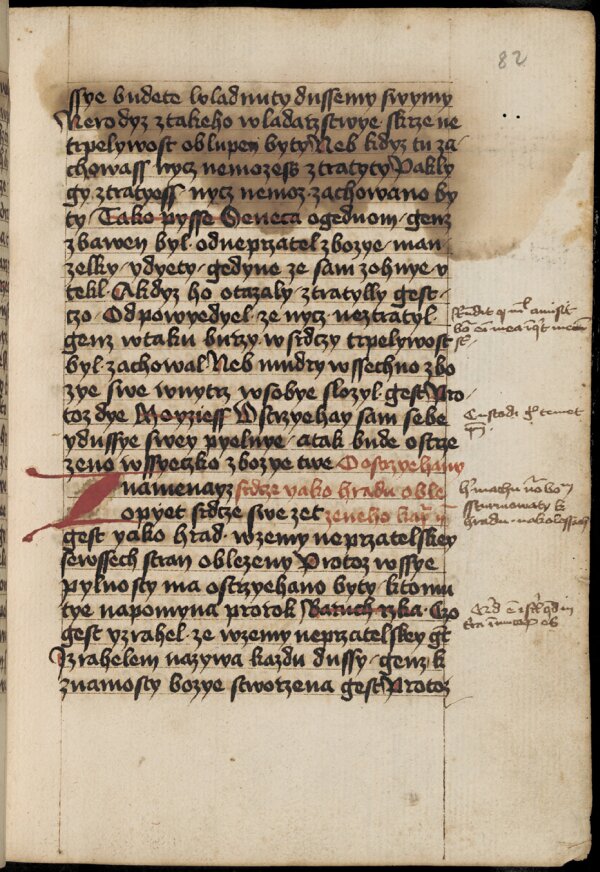 82
ssye budete wladnuty dussemy swymy
Nerodyz ztakeho wladarzstwye skrze ne
trpelywost oblupen byty Neb kdyz tu za
chowass nycz nemozess ztratyty Pakly
gy ztratyess nycz nemoz zachowano by
ty Tako pysse Seneca ogednom genz
zbawen byl odneprzatel zbozye man
zelky ydyety gedyne ze sam zohnye v
tekl Akdyz ho otazaly ztratylly gest
czo Odpowyedyel ze nycz neztratyl
genz wtaku burzy wsrdczy trpelywost
byl zachowal Neb mudry wssechno zbo
zye swe wnytrz wsobye slozyl gest Pro
toz dye Moyziess Ostrzyehay sam sebe
ydussye swey pyelnye atak bude ostrze
zeno wssyeczko zbozye twe Oostrzyehany
Znamenayz srdcze yako hradu oble
opyet srdcze swe zet zeneho
gest yako hrad wzemy neprzatelskey
sewssech stran oblezeny Protoz wssye
pylnosty ma ostrzyehano byty ktomu
tye napomyna prorok Baruch rzka Czo
gest yzrahel ze wzemy neprzatelskey gt
Izrahelem nazywa kazdu dussy genz k
znamosty bozye stworzena gest Protoz
Custodi temet
hradu